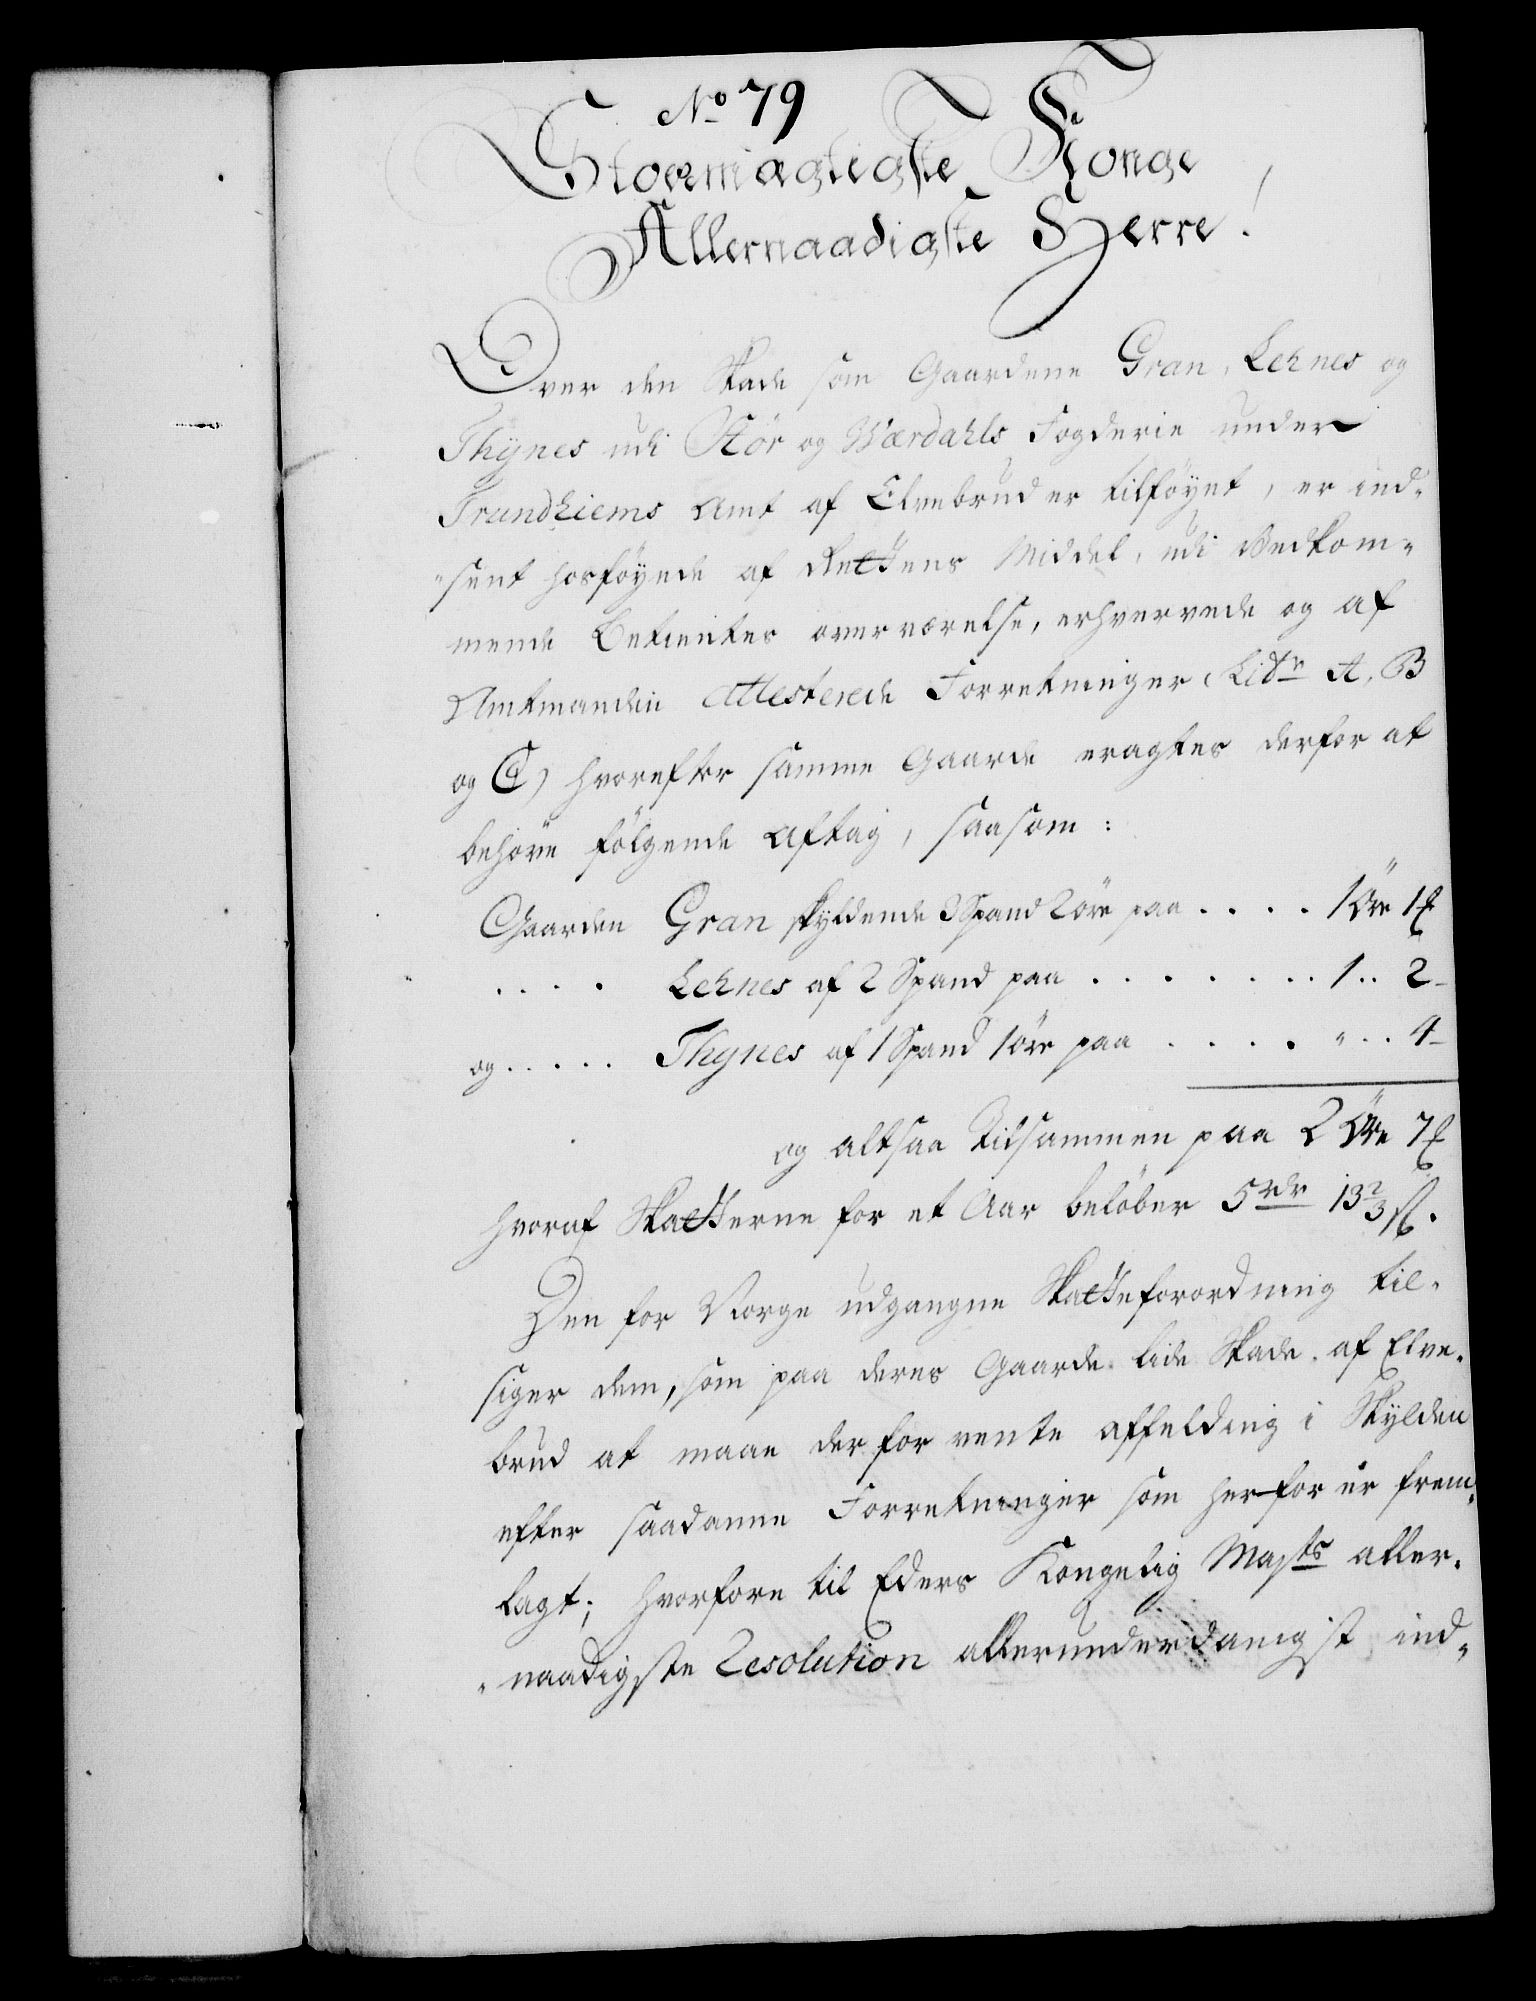 No 79
Stoermægtigste Konge
Allernaadigste Herre!
Over den Skade som Gaardene Gran, Lehnes og
Thÿnes udi Stör og Værdahls Fogderie under
Trundhiems Amt af Elvebrud er tilföyet, er ind-
"sent hosföyede af Rettens Middel, udi Vedkom-
mende Betientes overværelse, erhvervede og af
Amtmanden Attesterede Forretninger (Litr A, B
og C) hvorefter samme Gaarde eragtes derfor at
behöve fölgende Aftag, saasom:
Gaarden Gran skyldende 3 Spand 2 öre paa .... 1 Öre 1 ℔
.... Lehnes af 2 Spand paa ........ 1 .. 2 -
og ..... Thynes af 1 Spand 1 öre paa .... " .. 4 -
og altsaa tilsammen paa 2 Öre 7 ℔
hvoraf Skatterne for et Aar belöber 5 rdr 13 2/3 ß.
Den for Norge udgangne Skatteforordning til-
siger dem, som paa deres Gaarde lide Skade af Elve-
brud at maae derfor vente affelding i Skylden
efter saadanne Forretninger som herfor er frem-
lagt; hvorfore til Eders Kongelig Majts aller-
"naadigste Resolution allerunderdanigst ind-